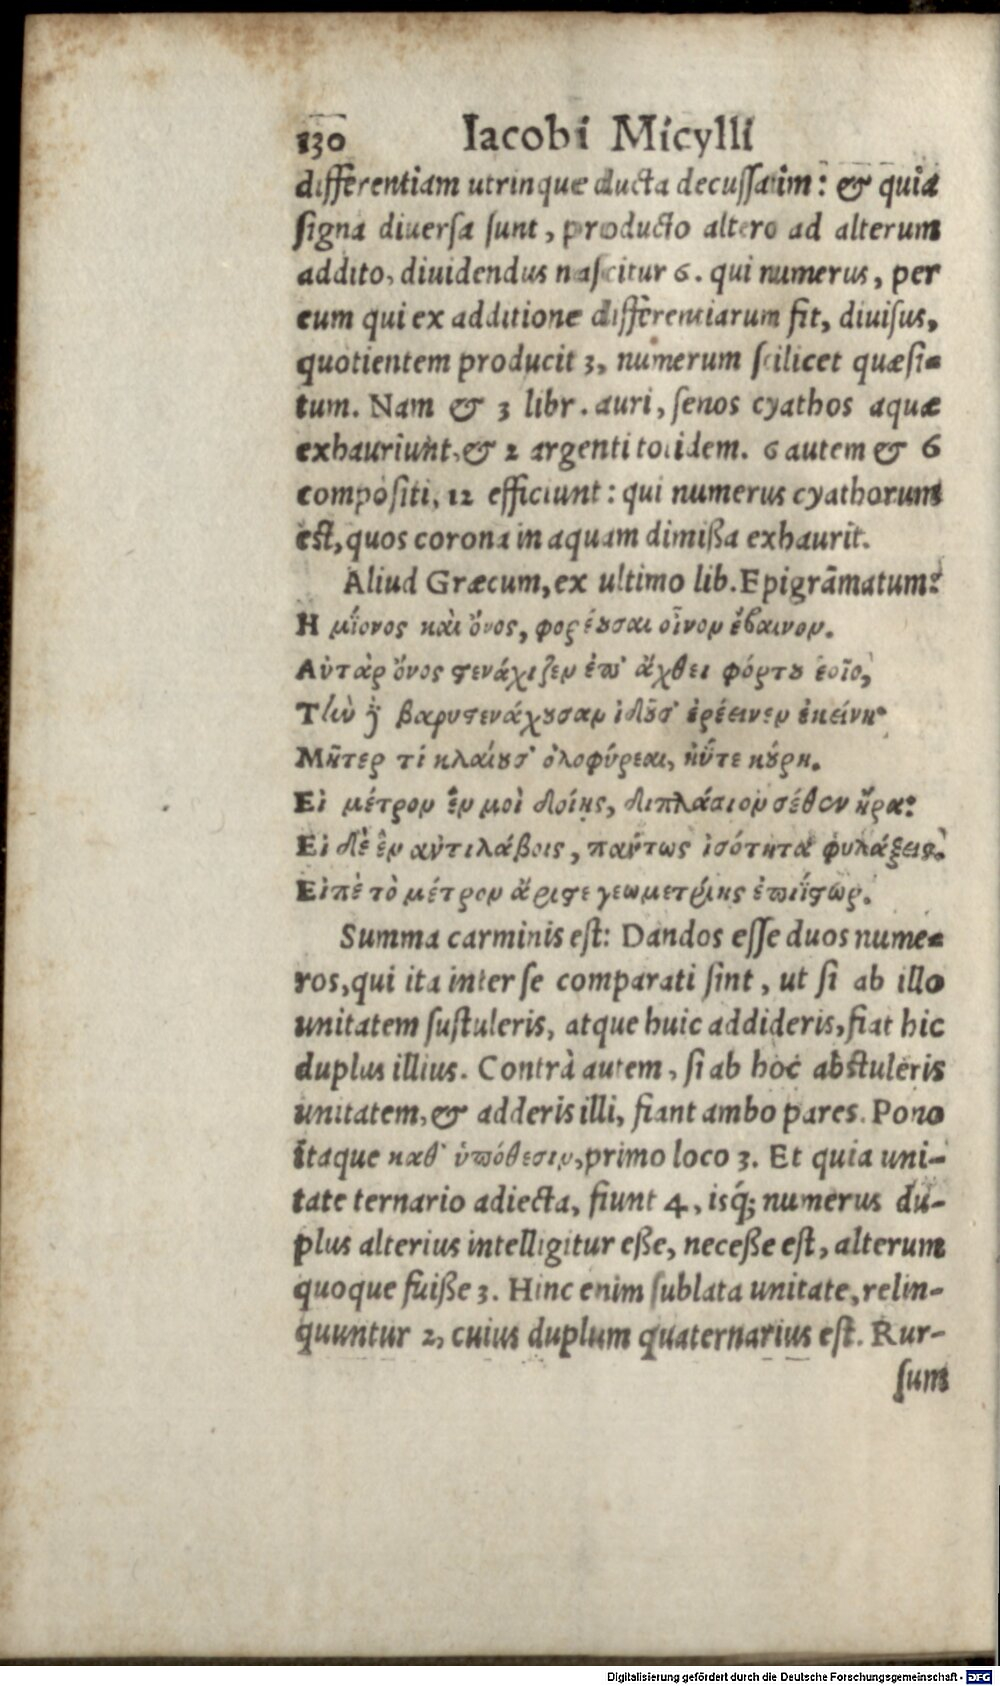 130 Iacobi Micylli
differentiam utrinque ducta decussatim: & quia
signa diuersa sunt, producto altero ad alterum
addito, diuidendus nascitur 6. qui numerus, per
eum qui ex additione differentiarum fit, diuisus,
quotientem producit 3, numerum scilicet quæsi-
tum. Nam & 3 libr. auri, senos cyathos aquæ
exhauriunt, & 2 argenti totidem. 6 autem & 6
compositi, 12 efficiunt: qui numerus cyathorum
est, quos corona in aquam dimißa exhaurit.
Aliud Græcum, ex ultimo lib. Epigrāmatum:
Ἡ μίονος καὶ ὄνος, φορέουσαι οἶνον ἔβαινον.
Αὐτὰρ ὄνος στενάχιζεν ἐπ' ἄχθει φόρτου ἑοῖο,
Τὴν δὲ βαρυστενάχουσαν ἰδοῦσ' ἐρέεινεν ἐκείνη·
Μῆτερ τί κλαίουσ' ὀλοφύρεαι, ἠΰτε κούρη.
Εἰ μέτρον ἓν μοὶ δοίης, διπλάσιον σέθεν ἦρα:
Εἰ δὲ ἓν αὐτιλάβοις, πάντως ἰσότητα φυλάξεις.
Εἰπὲ τὸ μέτρον ἄριστε γεωμετρίης ἐπιΐστωρ.
Summa carminis est: Dandos esse duos nume-
ros, qui ita inter se comparati sint, ut si ab illo
unitatem sustuleris, atque huic addideris, fiat hic
duplus illius. Contrà autem, si ab hoc abstuleris
unitatem, & adderis illi, fiant ambo pares. Pono
itaque καθ' ὑπόθεσιν, primo loco 3. Et quia uni-
tate ternario adiecta, fiunt 4, isq́; numerus du-
plus alterius intelligitur eße, neceße est, alterum
quoque fuiße 3. Hinc enim sublata unitate, relin-
quuntur 2, cuius duplum quaternarius est. Rur-
sum
Digitalisierung gefördert durch die Deutsche Forschungsgemeinschaft - DFG